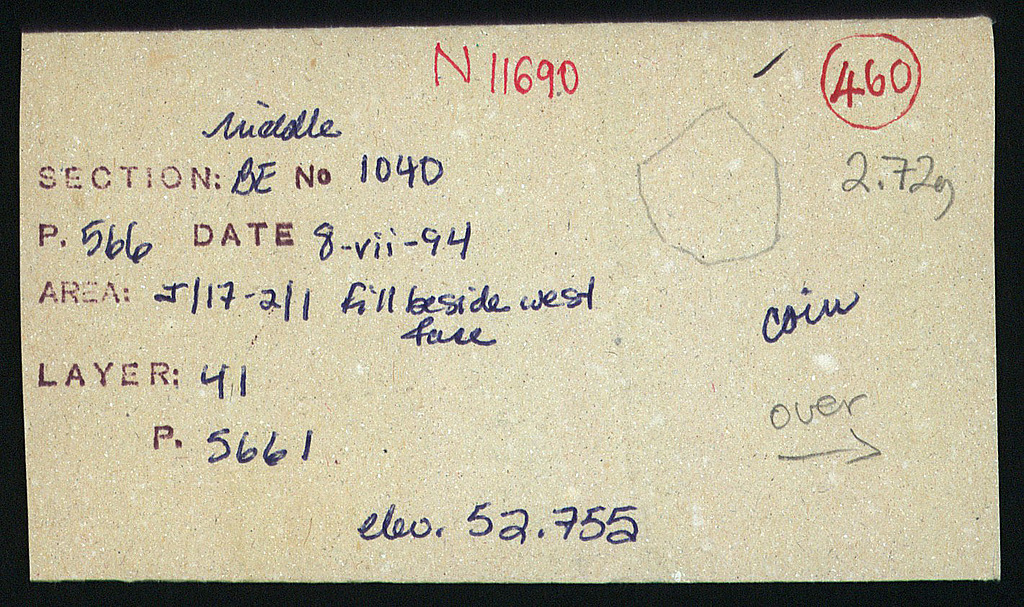 N 11690
460
middle
SECTION: BE No 1040
2.72g
P. 566 DATE 8-vii-94
AREA: J/17-2/1 fill beside west
face
coin
LAYER: 41
over
P. 5661
elev. 52.755